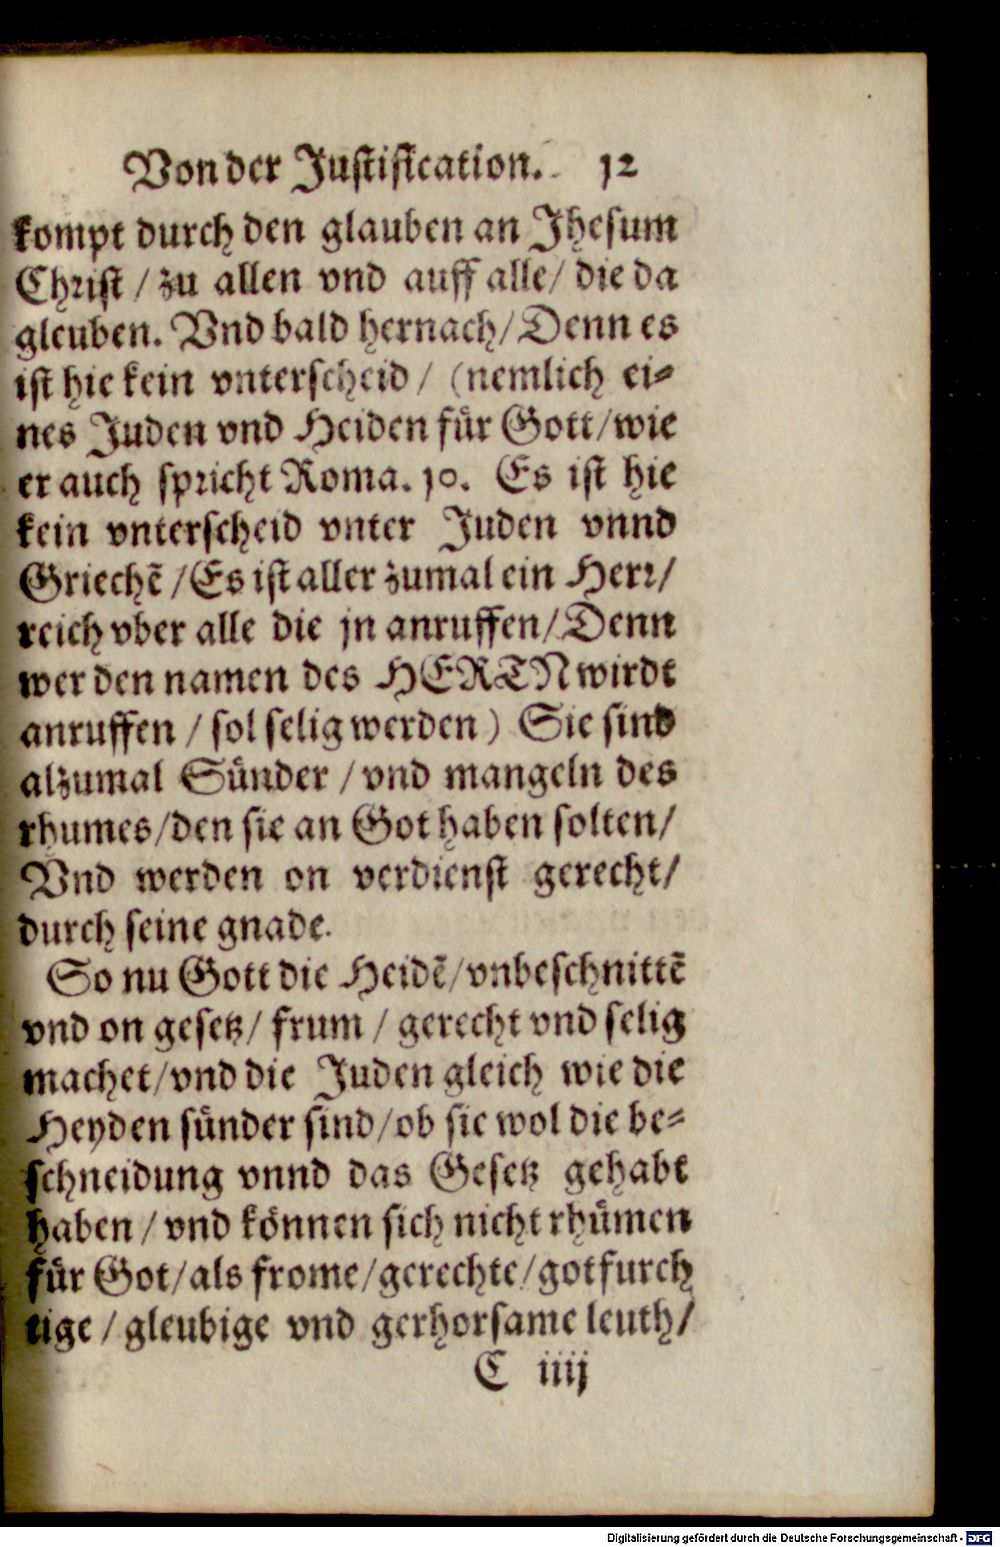 Von der Justification. 12
kompt durch den glauben an Jhesum
Christ / zu allen vnd auff alle / die da
gleuben. Vnd bald hernach / Denn es
ist hie kein vnterscheid / (nemlich ei⸗
nes Juden vnd Heiden für Gott / wie
er auch spricht Roma. 10. Es ist hie
kein vnterscheid vnter Juden vnnd
Griechẽ / Es ist aller zumal ein Herr /
reich vber alle die jn anruffen / Denn
wer den namen des HERTN wirdt
anruffen / sol selig werden ) Sie sind
alzumal Sünder / vnd mangeln des
rhumes / den sie an Got haben solten /
Vnd werden on verdienst gerecht /
durch seine gnade.
So nu Gott die Heidẽ / vnbeschnittẽ
vnd on gesetz / frum / gerecht vnd selig
machet / vnd die Juden gleich wie die
Heyden sünder sind / ob sie wol die be⸗
schneidung vnnd das Gesetz gehabt
haben / vnd können sich nicht rhümen
für Got / als frome / gerechte / gotfurch
tige / gleubige vnd gerhorsame leuth /
C iiij
Digitalisierung gefördert durch die Deutsche Forschungsgemeinschaft - DFG